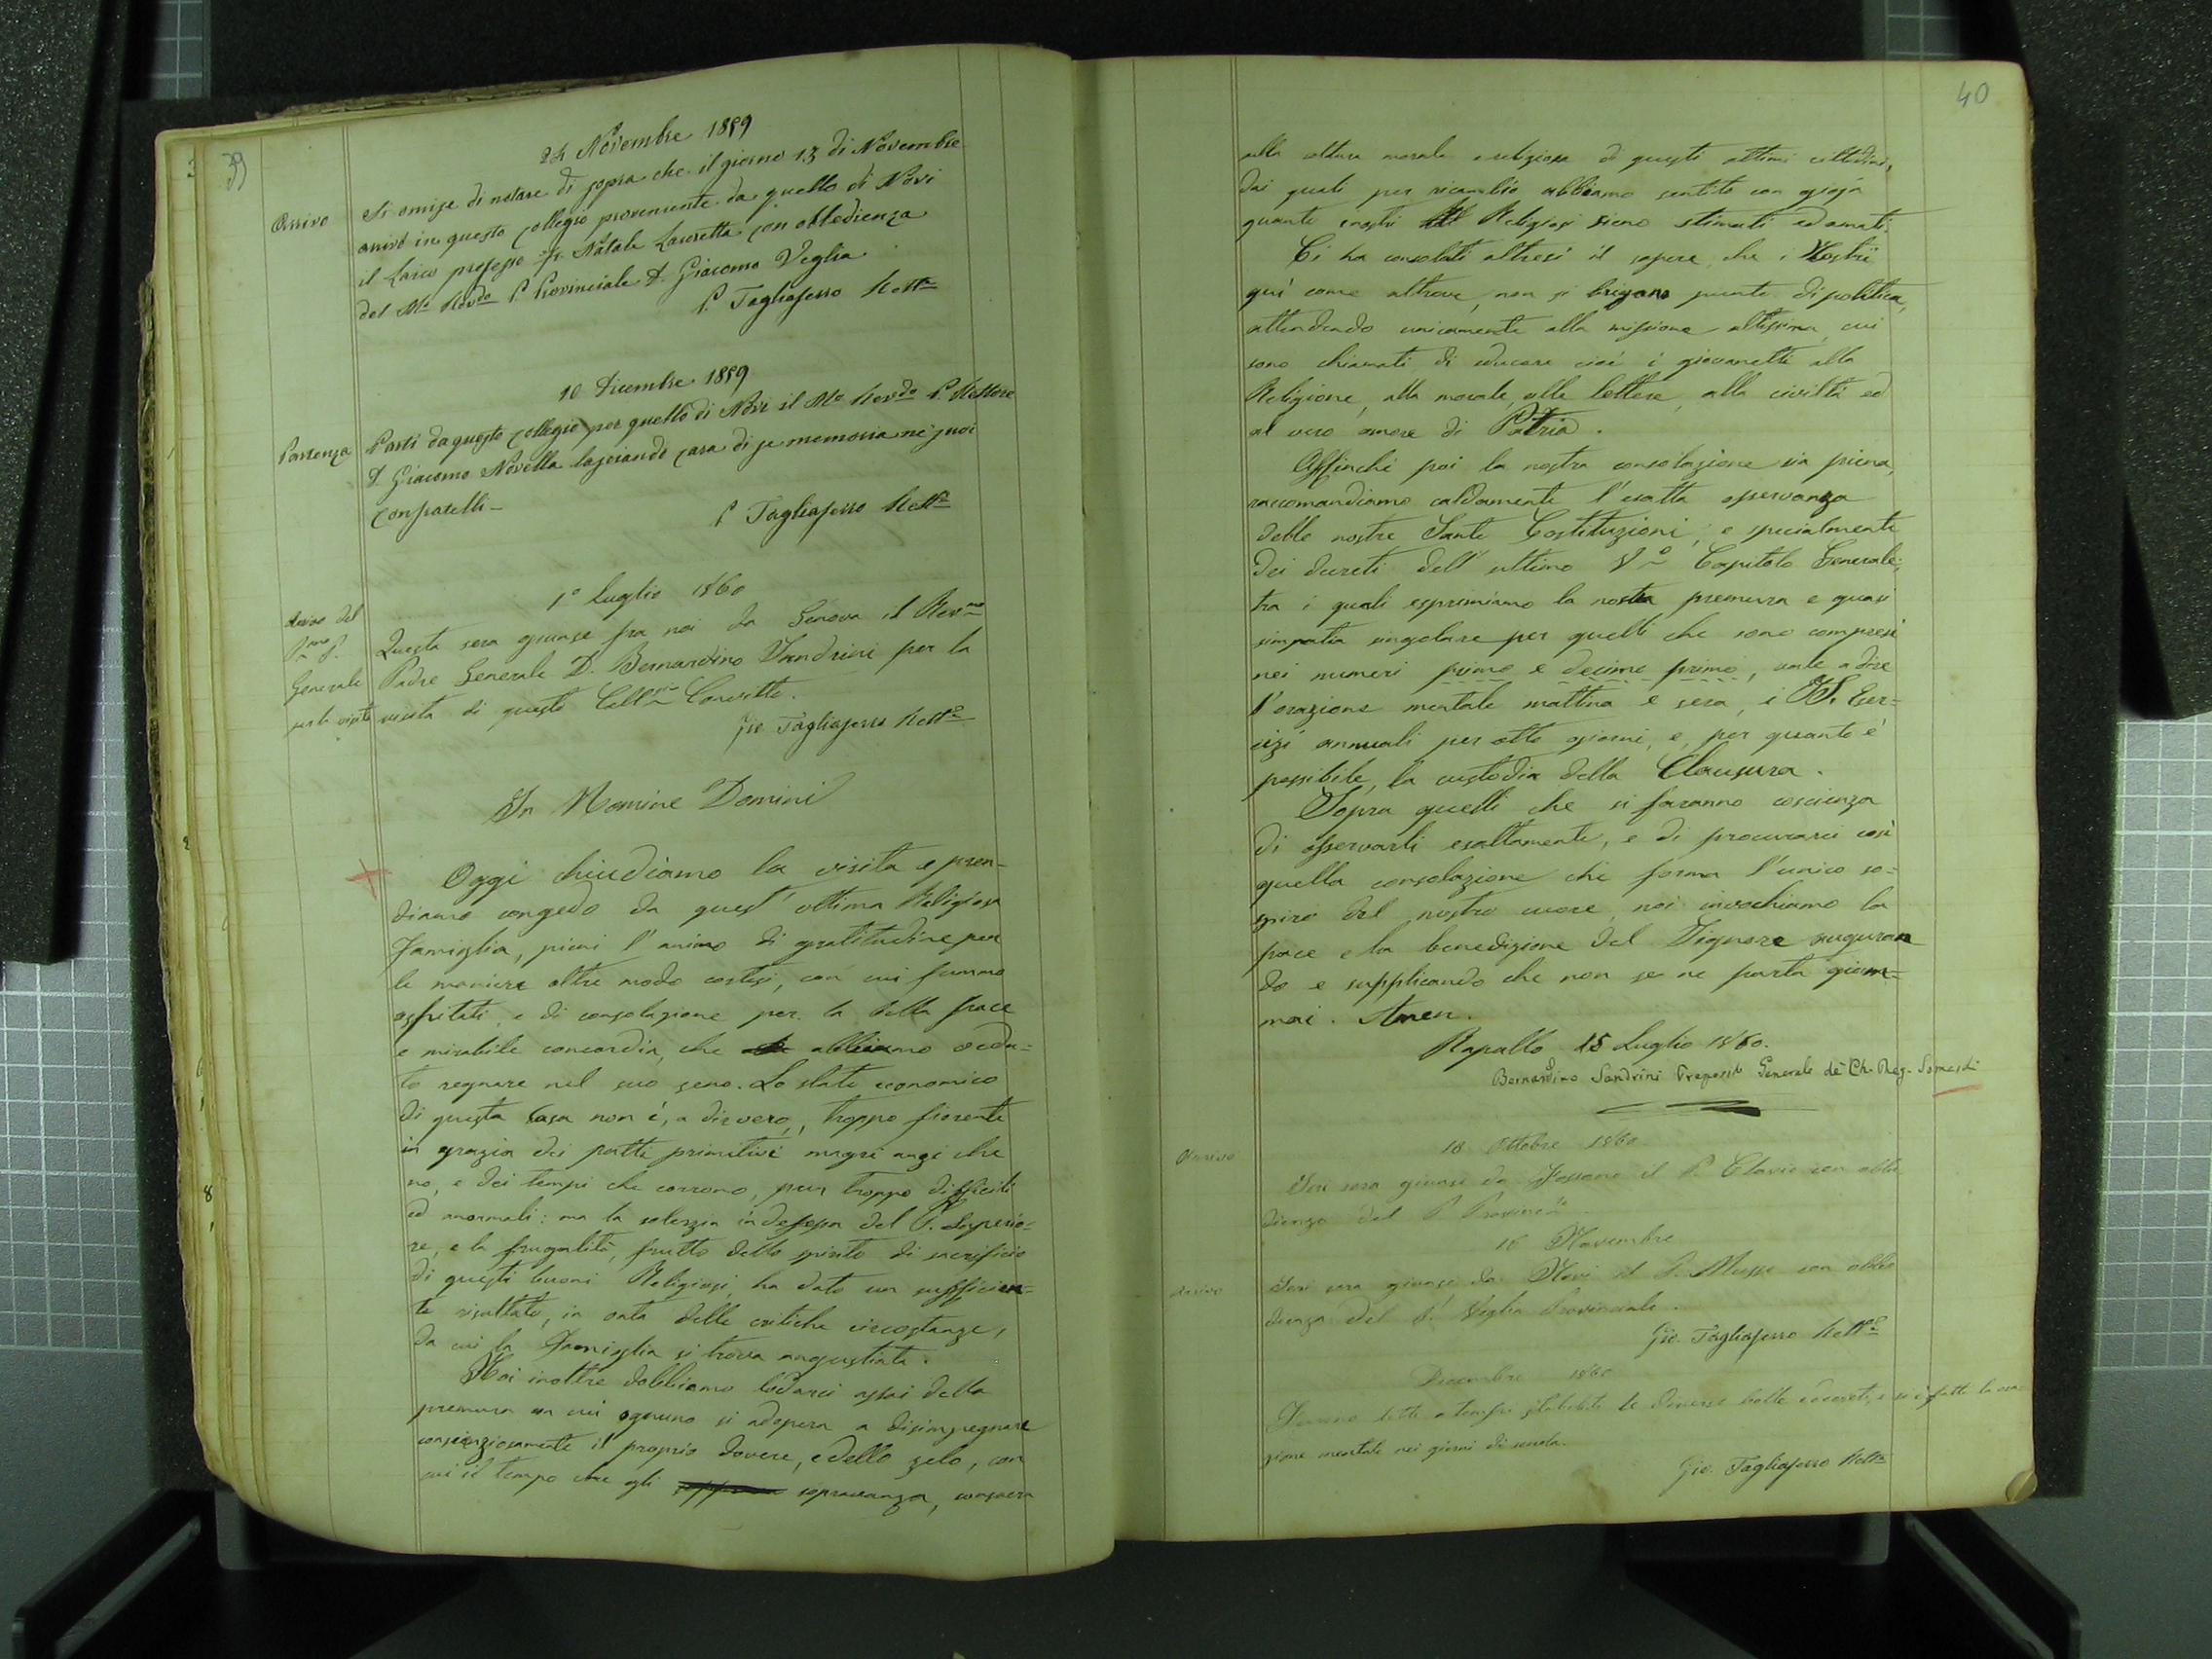 39
24 Novembre 1859
Arrivo
Si omise di notare di sopra che il giorno 13 di Novembre
arrivò in questo collegio proveniente da quello di Novi
il Laico professo Fr. Natale Lauretta con obbedienza
del Mo Revdo P. Provinciale D. Giacomo Veglia.
P. Tagliaferro Rettre
10 Dicembre 1859
Partenza
Partì da questo collegio per quello di Novi il Mo Revdo P. Rettore
D. Giacomo Novella lasciando cara di se memoria ne' suoi
confratelli -
P Tagliaferro Rettre
1° Luglio 1860
Arrivo del
Rmo P.
Generale
per la visita
Questa sera giunse fra noi da Genova il Revmo
Padre Generale D. Bernardino Sandrini per la
visita di questo Collgio Convitto.
Gio. Tagliaferro Rettre
In Nomine Domini
Oggi chiudiamo la visita e pren-
diamo congedo da quest' ottima Religiosa
Famiglia, pieni l' animo di gratitudine per
le maniere oltre modo cortesi, con cui fummo
ospitati, e di consolazione per la bella pace
e mirabile concordia, che abbiamo vedu-
to regnare nel suo seno. Lo stato economico
di questa Casa non è, a dir vero, troppo fiorente
in grazia dei patti primitivi magri anzi che
no, e dei tempi che corrono, pur troppo difficili
ed anormali: ma la solerzia indefessa del P. Superio-
re, e la frugalità, frutto dello spirito di sacrificio
di questi buoni Religiosi, ha dato un sufficien-
te risultato, in onta delle critiche circostanze,
da cui la Famiglia si trova angustiata.
Noi inoltre dobbiamo lodarci assai della
premura con cui ognuno si adopera a disimpegnare
conscienziosamente il proprio dovere, e dello zelo, con
cui il tempo che gli sopravanza, consacra
40
alla coltura morale e religiosa di questi ottimi cittadini,
dai quali per ricambio abbiamo sentito con gioja
quanto i nostri Religiosi sieno stimati ed amati.
Ci ha consolati altresì il sapere, che i Nostri
quì come altrove, non si brigano punto di politica,
attendendo unicamente alla missione altissima, cui
sono chiamati di educare cioè i giovanetti alla
Religione, alla morale, alle lettere, alla civiltà ed
al vero amore di Patria.
Affinchè poi la nostra consolazione sia piena,
raccomandiamo caldamente l' esatta osservanza
delle nostre Sante Costituzioni, e specialmente
dei decreti dell' ultimo Vo Capitolo Generale;
tra i quali esprimiamo la nostra premura e quasi
simpatia singolare per quelli che sono compresi
nei numeri primo e decimo primo, vale a dire
l' orazione mentale mattina e sera, i SS. Eser-
cizi annuali per otto giorni, e, per quanto è
possibile, la custodia della Clausura.
Sopra quelli che si faranno coscienza
di osservarli esattamente, e di procurarci così
quella consolazione che forma l' unico so-
spiro del nostro cuore, noi invochiamo la
pace e la benedizione del Signore auguran
do e supplicando che non se ne parta giam-
mai. Amen.
Rapallo 15 Luglio 1860.
Bernardino Sandrini Preposto Generale de' Ch. Reg. Somaschi
18 Ottobre 1860
Arrivo
Jeri sera giunse da Fossano il P. Clavio con obbe
dienza del P. Provincle
16 Novembre
Arrivo
Jeri sera giunse da Novi il P. Musso con obbe
dienza del P. Veglia Provinciale.
Gio. Tagliaferro Rettre
Dicembre 1860
Furono lette a tempi stabiliti le diverse bolle e decreti, e si è fatta la ora
zione mentale nei giorni di scuola.
Gio. Tagliaferro Rettre